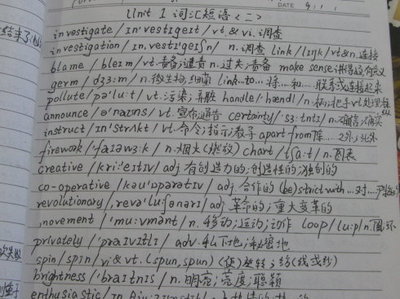 DATE
Unit 1 词汇短语 (二)
investigate /ɪnˈvestɪgeɪt/ vt.&vi.调查
investigation /ɪnˌvestɪˈgeɪʃn/ n.调查 link /lɪŋk/ vt&n.连接
blame /bleɪm/ vt.责备;谴责 n.过失;责备 make sense 讲得通;有意义
germ /dʒɜ:m/ n.微生物;细菌 link...to... 将...和...联系或连接起来
pollute /pəˈlu:t/ vt.污染;弄脏 handle /ˈhændl/ n. vt.处理
announce /əˈnaʊns/ vt.宣布;通告 certainty /ˈsɜ:tntɪ/ n.
instruct /ɪnˈstrʌkt/ vt.命令;指示;教导 apart from 除...之外;此外
firework /ˈfaɪəwɜ:k/ n.烟火(燃放) chart /tʃɑ:t/ n.图表
creative /kri:ˈeɪtɪv/ adj 有创造力的;创造性的;独创的
co-operative /kəʊˈɒpərətɪv/ adj 合作的 (be) strict with... 对...严格的
revolutionary /ˌrevəˈlu:ʃənərɪ/ adj 革命的;重大变革的
movement /ˈmu:vmənt/ n.移动;运动;动作 loop /lu:p/ n.圈;环
privately /ˈpraɪvɪtlɪ/ adv.私下地;秘密地
spin /spɪn/ vi.&vt.(spun,spun) (使)旋转;纺(线或纱)
brightness /ˈbraɪtnɪs/ n.明亮;亮度;聪颖
enthusiastic